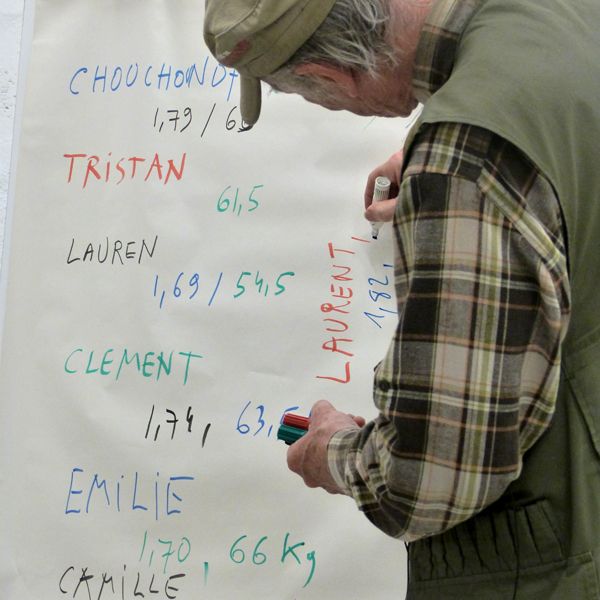 CHOUCHOND
1,79 / 6
TRISTAN
61,5
LAUREN
1,69 / 54,5
LAURENT,
1,82,
CLEMENT
1,74, 63,5
EMILIE
1,70, 66 Kg
CAMILLE